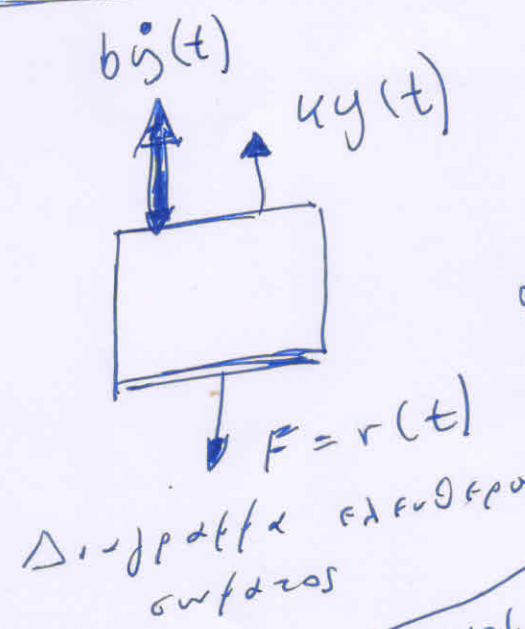 bẏ(t)
κy(t)
F = r(t)
Διάγραμμα ελευθέρου
σώματος